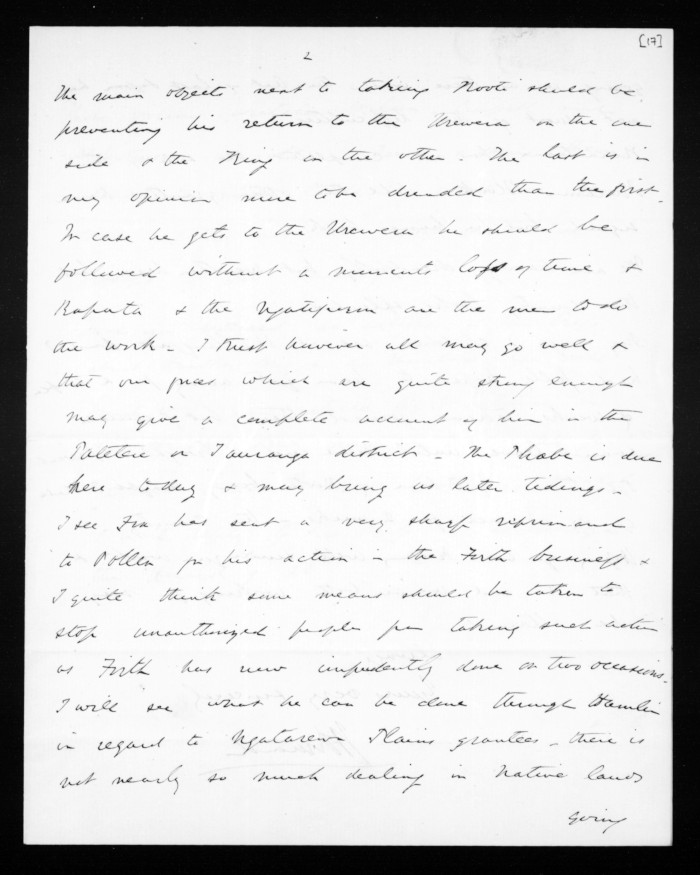 [17]
2
The main object next to taking Kooti should be
preventing his return to the Urewera on the one
side & the King on the other. The last is in
my opinion more to be dreaded than the first.
In case he gets to the Urewera he should be
followed without a moments loss of time &
Ropata & the Ngatiporou are the men to do
the work - I trust however all may go well &
that our forces which are quite strong enough
may give a complete account of him in the
Patetere or Tauranga district - The Phoebe is due
here today & may bring us later tidings -
I see Fox has sent a very sharp reprimand
to Pollen for his action in the Firth business &
I quite think some means should be taken to
stop unauthorized people from taking such action
as Firth has now impudently done on two occasions.
I will see what he can be done through Hamlin
in regard to Ngatarawa Plains grantees - there is
not nearly so much dealing in Native lands
going